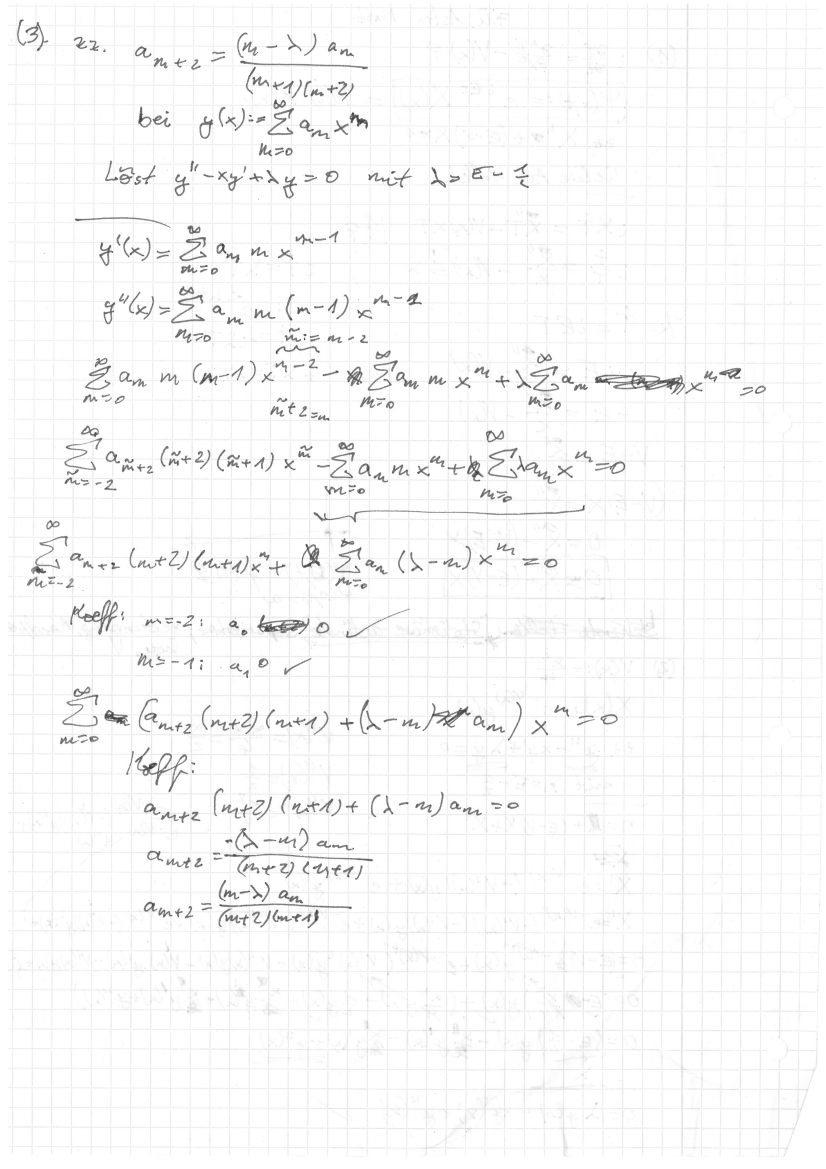 (3) zz. a_{m+2} = \frac{(m-λ) a_m}{(m+1)(m+2)}
bei y(x) := \sum_{m=0}^{∞} a_m x^m
Löst y'' - xy' + λy = 0 mit λ = E - \frac{1}{2}
y'(x) = \sum_{m=0}^{∞} a_m m x^{m-1}
y''(x) = \sum_{m=0}^{∞} a_m m (m-1) x^{m-2}
m̃ := m-2
\sum_{m=0}^{∞} a_m m (m-1) x^{m-2} - \sum_{m=0}^{∞} a_m m x^m + λ \sum_{m=0}^{∞} a_m x^m = 0
m̃+2 = m
\sum_{m̃=-2}^{∞} a_{m̃+2} (m̃+2) (m̃+1) x^{m̃} - \sum_{m=0}^{∞} a_m m x^m + \sum_{m=0}^{∞} λ a_m x^m = 0
\sum_{m=-2}^{∞} a_{m+2} (m+2) (m+1) x^m + \sum_{m=0}^{∞} a_m (λ-m) x^m = 0
Koeff: m=-2: a_0 0 ✓
m=-1: a_1 0 ✓
\sum_{m=0}^{∞} (a_{m+2} (m+2) (m+1) + (λ-m) a_m) x^m = 0
Koeff:
a_{m+2} (m+2) (m+1) + (λ-m) a_m = 0
a_{m+2} = \frac{-(λ-m) a_m}{(m+2) (m+1)}
a_{m+2} = \frac{(m-λ) a_m}{(m+2)(m+1)}